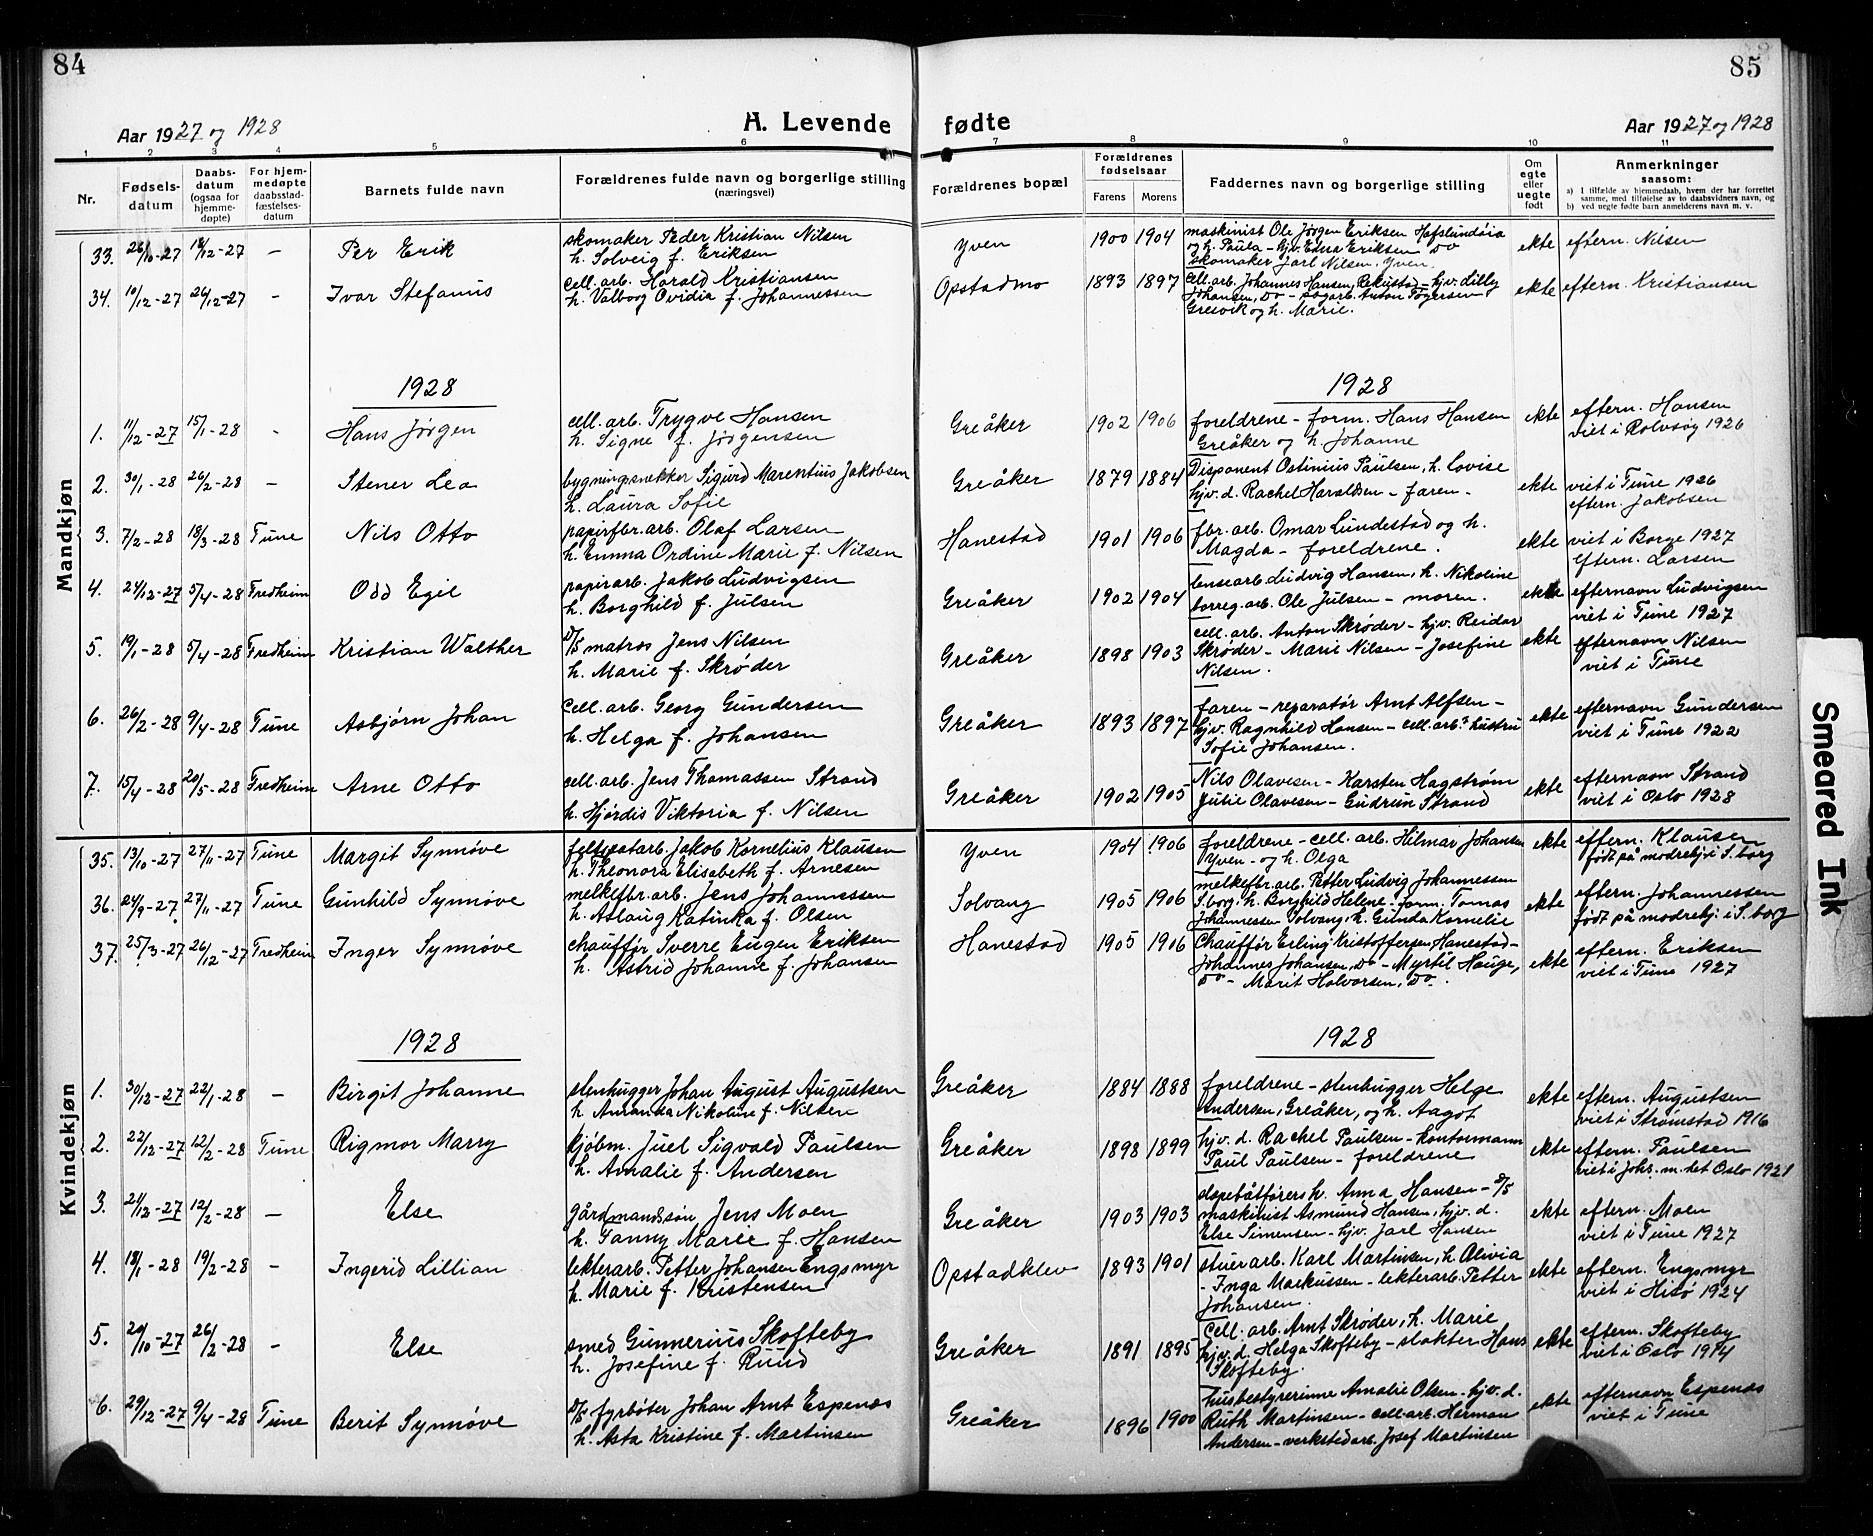 84
85
Aar 1927 og 1928
A. Levende fødte
Aar 1927 og 1928
1 2 3 4 5 6 7 8 9 10 11
Nr.
Fødsels-datum
Daabs-datum (ogsaa for hjemme-døpte)
For hjem-medøpte daabsstad-fæstelses-datum
Barnets fulde navn
Forældrenes fulde navn og borgerlige stilling (næringsvei)
Forældrenes bopæl
Forældrenes fødselsaar
Farens Morens
Faddernes navn og borgerlige stilling
Om egte eller uegte født
Anmerkninger saasom:
a) I tilfælde av hjemmedaab, hvem der har forrettet samme, med tilføielse av to daabsvidners navn, og
b) ved uegte fødte barn anmelderens navn m. v.
Mandkjøn
33. 26/10-27 18/12-27 – Per Erik
skomaker Peder Kristian Nilsen
h. Solveig f. Eriksen
Yven 1900 1904
maskinist Ole Jørgen Eriksen Hafslundsøia
og h. Paula – hjv. Edna Eriksen do
skomaker Jarl Nilsen, Yven.
ekte eftern. Nilsen
34. 10/12-27 26/12-27 – Ivar Stefanus
cell. arb. Harald Kristiansen
h. Valborg Ovidia f. Johannessen
Opstadmo 1893 1897
cell. arb. Johannes Hansen, Rekustad – hjv. Lilly
Johansen, do – sagarb. Anton Togersen
Gresvik og h. Marie.
ekte eftern. Kristiansen
1928
1928
1. 11/12-27 15/1-28 - Hans Jørgen
cell. arb. Trygve Hansen
h. Signe f. Jørgensen
Greåker 1902 1906
foreldrene – form. Hans Hansen
Greåker og h. Johanne
ekte eftern. Hansen
viet i Rolvsøy 1926
2. 30/1-28 26/2-28 – Stener Leo
bygningssnekker Sigurd Marentius Jakobsen
h. Laura Sofie
Greåker 1879 1884
Disponent Ostinius Paulsen, h. Lovise
hjv. d. Rachel Haraldsen – faren –
ekte viet i Tune 1926
eftern. Jakobsen
3. 7/2-28 18/3-28 Tune Nils Otto
papirfbr. arb. Olaf Larsen
h. Emma Ordine Marie f. Nilsen
Hanestad 1901 1906
fbr. arb. Omar Lundestad og h.
Magda – foreldrene.
ekte viet i Borge 1927
Eftern. Larsen
4. 24/12-27 5/4-28 Fredheim Odd Egil
papirarb. Jakob Ludvigsen
h. Borghild f. Julsen
Greåker 1902 1904
lensearb. Ludvig Hansen, h. Nikoline
borreg. arb. Ole Julsen – moren.
ekte efternavn Ludvigsen
viet i Tune 1927
5. 19/1-28 5/4-28 Fredheim Kristian Walther
D/S matros Jens Nilsen
h. Marie f. Skrøder
Greåker 1898 1903
cell. arb. Anton Skrøder – hjv. Reidar
Skrøder – Marie Nilsen – Josefine
Nilsen.
ekte efternavn Nilsen
viet i Tune
6. 26/2-28 9/4-28 Tune Asbjørn Johan
cell. arb. Georg Gundersen
h. Helga f. Johansen
Greåker 1893 1897
faren – reparatør Arnt Alfsen –
hjv. Ragnhild Hansen – cell. arb.s hustru
Sofie Johansen.
ekte efternavn Gundersen
viet i Tune 1922
7. 15/4-28 20/5-28 Fredheim Arne Otto
cell. arb. Jens Thomassen Strand
h. Hjørdis Viktoria f. Nilsen
Greåker 1902 1905
Nils Olavesen – Karsten Hagstrøm
Julie Olavesen – Gudrun Strand
ekte efternavn Strand
viet i Oslo 1928
Kvindekjøn
35. 13/10-27 27/11-27 Tune Margit Synnøve
Jakob Kornelius Klausen
h. Theonora Elisabeth f. Arnesen
Yven 1904 1906
foreldrene – cell. arb. Hilmar Johansen
Yven – og h. Olga
ekte eftern. Klausen
født på modrehj. i S.borg
36. 24/9-27 27/11-27 Tune Gunhild Synnøve
melkefbr. arb. Jens Johannessen
h. Aslaug Katinka f. Olsen
Solvang 1905 1906
melkefbr. arb. Petter Ludvig Johannessen
S.borg. h. Borghild Helene – form. Tomas
Johannessen Solvang, h. Gunda Kornelie
ekte eftern. Johannessen
født på modrehj. i S.borg
37. 25/3-27 26/12-27 Fredheim Inger Synnøve
chauffør Sverre Eugen Eriksen
h. Astrid Johanne f. Johansen
Hanestad 1905 1906
Chauffør Erling Kristoffersen Hanestad –
Johannes Johansen, do – Myrtil Hauge,
do – Marit Halvorsen, do.
ekte eftern. Eriksen
viet i Tune 1927
1928
1928
1. 30/12-27 22/1-28 – Birgit Johanne
stenhugger Johan August Augustsen
h. Amanda Nikoline f. Nilsen
Greåker 1884 1888
foreldrene – stenhugger Helge
Andersen, Greåker, og h. Aagot
ekte eftern. Augustsen
viet i Strømstad 1916
2. 22/12-27 12/2-28 Tune Rigmor Marry
kjøbm. Juel Sigvald Paulsen
h. Amalie f. Andersen
Greåker 1898 1899
hjv. d. Rachel Paulsen – kontormann
Paul Paulsen – foreldrene
ekte eftern. Paulsen
viet i Johs. m. det Oslo 1921
3. 21/12-27 12/2-28 – Else
gårdmandssøn Jens Moen
h. Fanny Marie f. Hansen
Greåker 1903 1903
slepebåtførers h. Anna Hansen – D/S
maskinist Asmund Hansen, hjv. d.
Else Simensen – hjv. Jarl Hansen
ekte eftern. Moen
viet i Tune 1927
4. 18/1-28 19/2-28 – Ingerid Lillian
lekterarb. Petter Johansen Engsmyr
h. Marie f. Kristensen
Opstadklev 1893 1901
stuerarb. Karl Martinsen, h. Olivia
– Inga Markussen – lekterarb. Petter
Johansen.
ekte eftern. Engsmyr
viet i Hisø 1924
5. 20/10-27 26/2-28 – Else
smed Gunnerius Skofteby
h. Josefine f. Ruud
Greåker 1891 1895
Cell. arb. Arnt Skrøder, h. Marie
hjv. d. Helga Skofteby – slakter Hans
Skofteby.
ekte eftern. Skofteby
viet i Oslo 1914
6. 29/12-27 9/4-28 Tune Berit Synnøve
D/S fyrbøter Johan Arnt Espenæs
h. Asta Kristine f. Martinsen
Greåker 1896 1900
husbestyrerinne Amalie Olsen – hjv. d.
Ruth Martinsen – cell. arb. Herman
Andersen – verkstedarb. Josef Martinsen
ekte efternavn Espenæs
viet i Tune
Smeared Ink